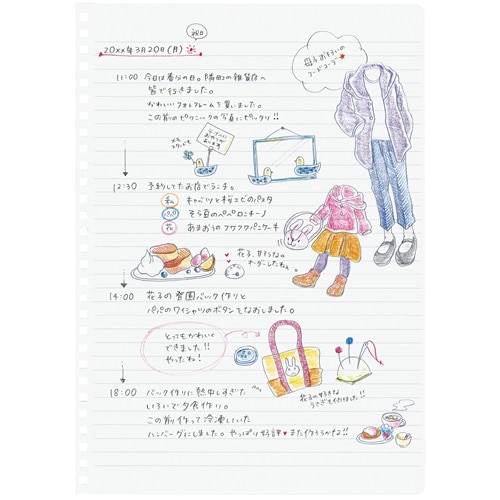 祝日
20××年3月20日(月)
母子おそろいの
フードコーデ
11:00 今日は春分の日。隣町の雑貨店へ
皆で行きました。
かわいいフォトフレームを買いました。
この前のピクニックの写真にピッタリ!!
メモ
スタンドも
12:30 予約してたお店でランチ。
私 キャベツと桜エビのパスタ
パパ そら豆のペペロンチーノ
花 あまおうのフワフワパンケーキ
花子、甘そうなの
オーダーしたねぇ。
14:00 花子の登園バック作りと
パパのワイシャツのボタンをなおしました。
とってもかわいく
できました!!
やったね!
花子の好きな
うさぎも付けました!!
18:00 バック作りに熱中しすぎた
いそいで夕食作り。
この前作って冷凍していた
ハンバーグにしました。やっぱり好評♥また作ろうかな!!